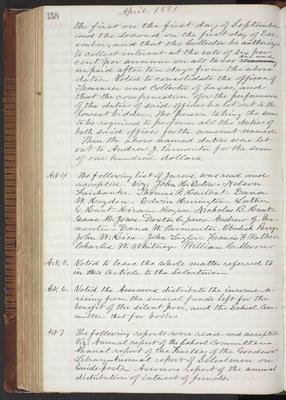 358
April 1881
the first on the first day of September
and the second on the first day of Dec-
ember, and that the Collector be authorized
to collect interest at the rate of six per
cent per annum on all taxes remaining
unpaid after ten days from the above
dates. Voted to consolidate the offices of
Treasurer and Collector of Taxes, and
that the compensation for the performance
of the duties of said offices be let out to the
lowest bidder, the person taking the same
to be required to perform all the duties of
both said offices for the amount named
Then the above named duties were let
out to Andrew J. for the sum
of one hundred dollars
Art 4 The following list of jurors was read and
accepted. Viz: John H. Nelson
Fairbanks. Thomas F. Dana
W. Hayden. Edwin Luther
G. Kent. Hiram Nicholas R. Kent
Isaac M. Jones. A. Jones. Andrew J.
Dana W. Obadiah Perry
John W. John Francis F.
Charles W. Whitney. William H. Moore
Art 5. Voted to leave the whole matter referred to
in this Article to the Selectmen
Art 6. Voted the Assessors distribute the income a-
rising from the several funds left for the
benefit of the silent poor, and the School Com-
mittee that for books
Art 7 The following reports were read and accepted
Viz: Annual report of the School Committee
Annual report of the Trustees of the Goodnow
Library Annual report of Selectmen on
Guideposts Assessors report of the annual
distribution of interest of funds.